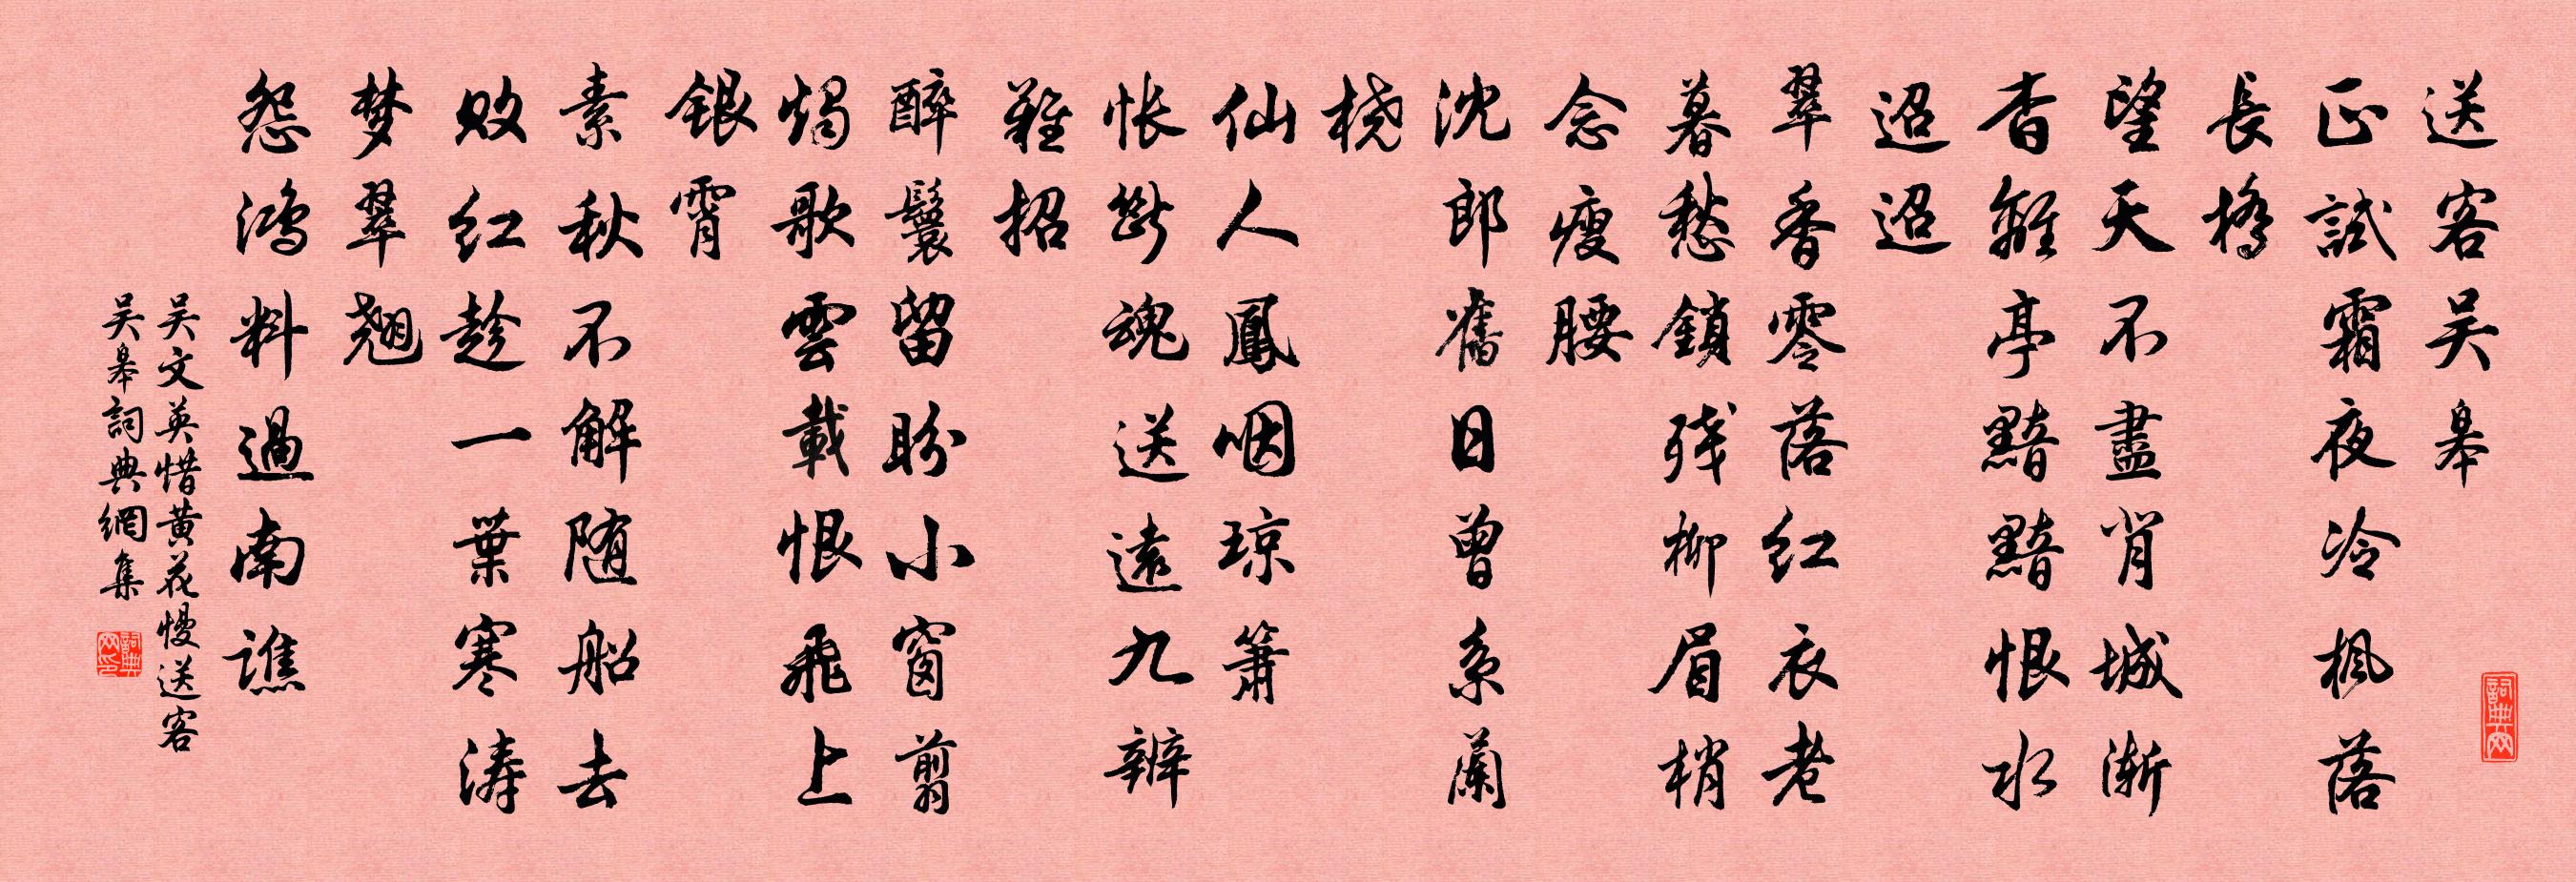 送客吴皋
正試霜夜冷楓落
長橋
望天不盡背城漸
杳離亭黯黯恨水
迢迢
翠香零落红衣老
暮愁鎖残柳眉梢
念瘦腰
沈郎舊日曾系蘭
桡
仙人鳳咽琼簫
怅斷魂送遠九辨
難招
醉鬟留盼小窗翦
燭歌雲載恨飛上
銀霄
素秋不解随船去
败红趁一葉寒涛
梦翠翘
怨鸿料過南譙
吴文英惜黄花慢送客
吴皋詞典網集
詞典网
詞典网印